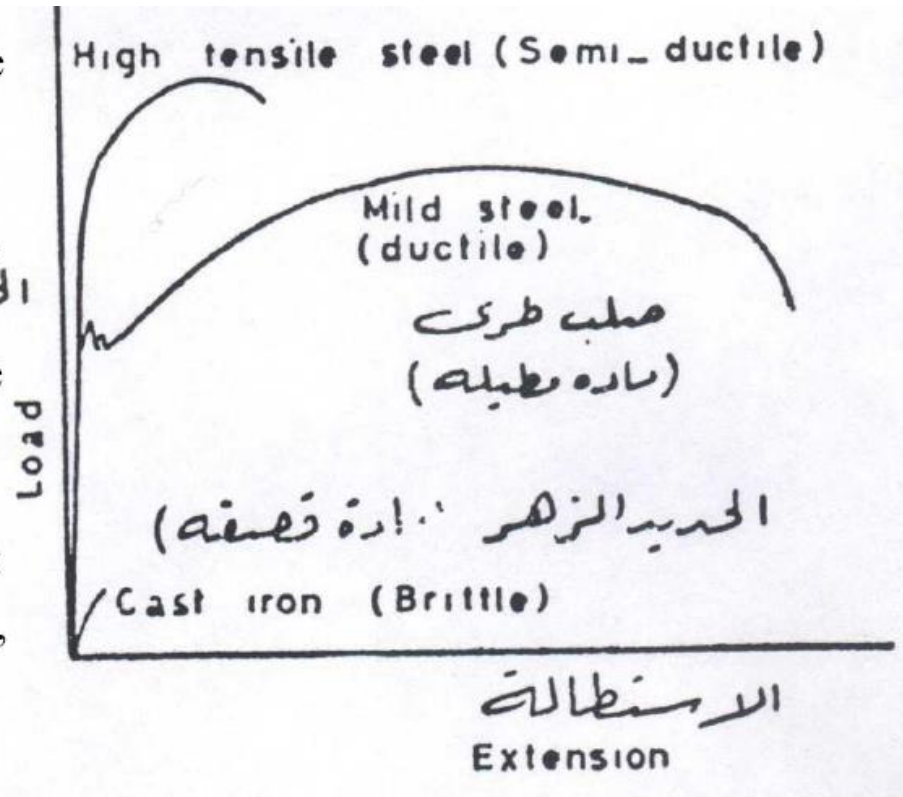 High tensile steel (Semi-ductile)
Mild steel.
(ductile)
صلب طرى
(ماده مطيله)
Load
الحديد الزهر
ادة قصفه)
Cast iron (Brittle)
الاستطالة
Extension